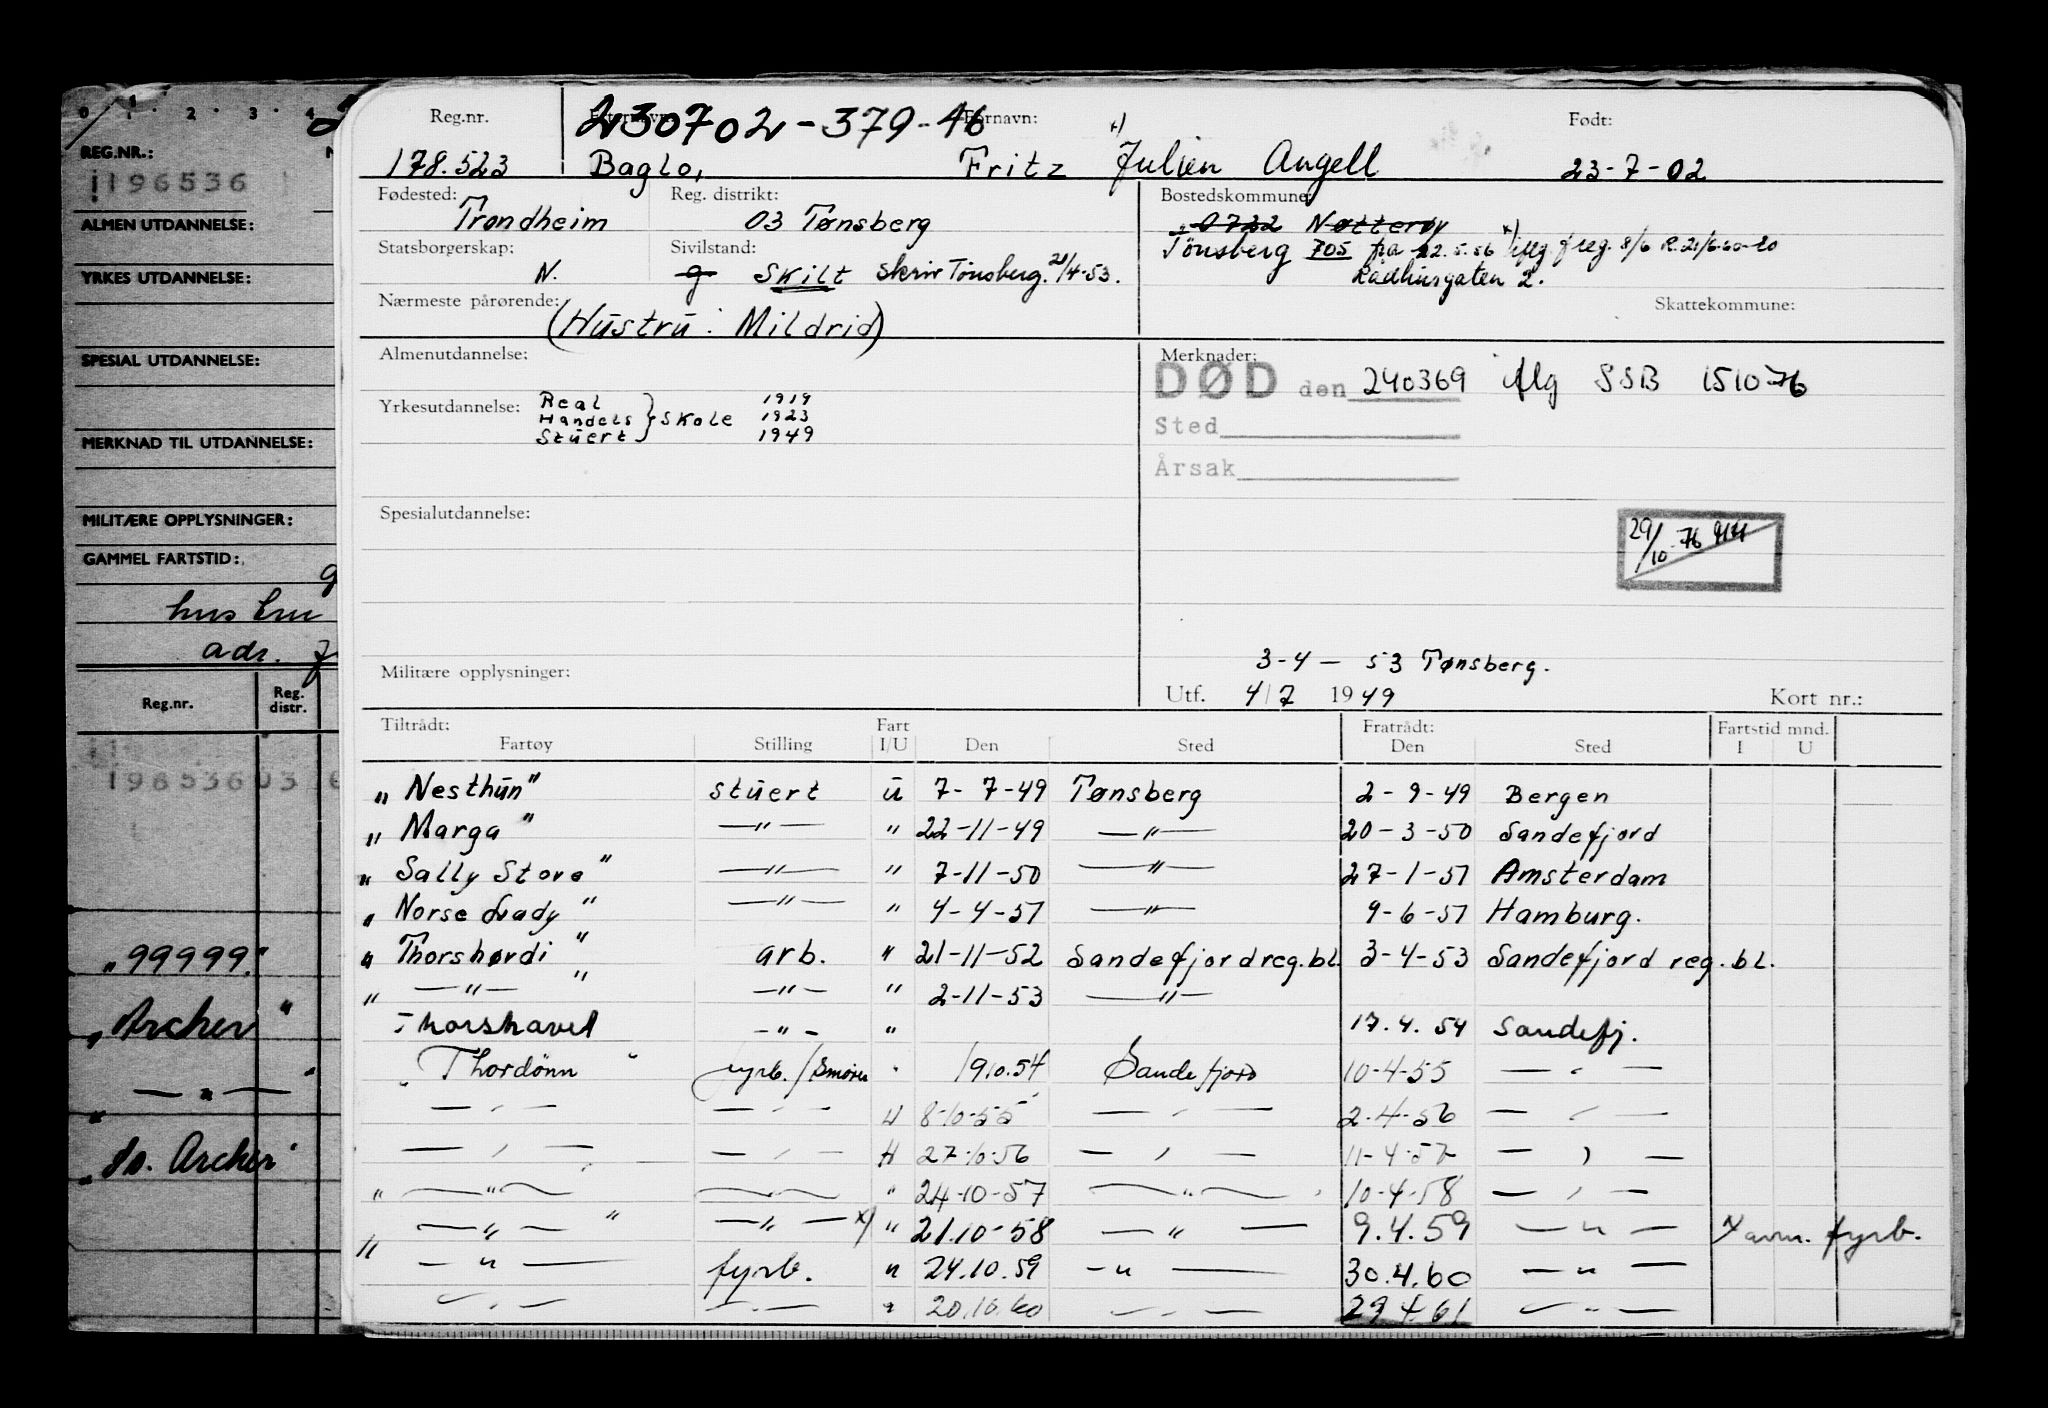 0 · 1 · 2 · 3 · 4
REG.NR.:
196536
ALMEN UTDANNELSE:
YRKES UTDANNELSE:
SPESIAL UTDANNELSE:
MERKNAD TIL UTDANNELSE:
MILITÆRE OPPLYSNINGER:
GAMMEL FARTSTID:
hustru
adr.
Reg.nr. Reg. distr.
196536 03
„99999."
„Archer "
— " — "
„ Archer"
Reg.nr. Etternavn: Fornavn: Født:
230702-379-46
178.523 Baglo, Fritz x) Julien Angell 23-7-02
Fødested: Reg. distrikt: Bostedskommune:
Trondheim 03 Tønsberg 0722 Nøtterøy
Statsborgerskap: Sivilstand: Tönsberg 705 fra 22.5.56 x) iflg. freg. 8/6 R.21/6.60-20
N. g Skilt skriv Tönsberg. 21/4-53. Rådhusgaten 2.
Nærmeste pårørende: Skattekommune:
(Hustru: Mildrid)
Almenutdannelse: Merknader:
DØD den 240369 iflg SSB 151076
Yrkesutdannelse: Real 1919
Handels } Skole 1923
Stuert 1949
Sted
Årsak
Spesialutdannelse:
29/10-76
3-4-53 Tønsberg.
Militære opplysninger: Utf. 4/7 1949 Kort nr.:
Tiltrådt: Fart Fratrådt: Fartstid mnd.
Fartøy Stilling I/U Den Sted Den Sted I U
„ Nesthun" stuert u 7-7-49 Tønsberg 2-9-49 Bergen
„ Marga " —"— " 22-11-49 —"— 20-3-50 Sandefjord
„ Sally Stove" —"— " 7-11-50 —"— 27-1-51 Amsterdam
„ Norse Lady " —"— " 4-4-51 —"— 9-6-51 Hamburg.
„ Thorshørdi " arb. " 21-11-52 Sandefjord reg.bl. 3-4-53 Sandefjord reg.bl.
„ —"— " —"— " 2-11-53 —"—
Thorshavet —"— " 17.4.54 Sandefj.
„ Thordönn " fyrb./Smører " 19.10.54 Sandefjord 10-4-55 —"—
—"— —"— U 8-10-55 —"— 2-4-56 —"—
—"— —"— H 27.10.56 —"— 11-4-57 —"—
" —"— —"— " 24-10-57 —"— 10-4-58 —"—
—"— " —"— x) " 21.10-58 —"— 9.4.59 —"— x) avm. fyrb.
" —"— fyrb. " 24.10.59 —"— 30.4.60 —"—
—"— —"— " 20.10.60 —"— 29.4.61 —"—